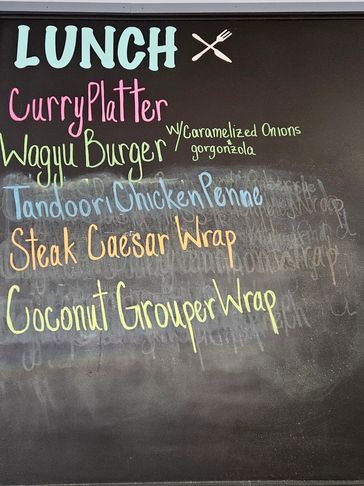 LUNCH
Curry Platter
Wagyu Burger w/ Caramelized Onions
& gorgonzola
Tandoori Chicken Penne
Steak Caesar Wrap
Coconut Grouper Wrap